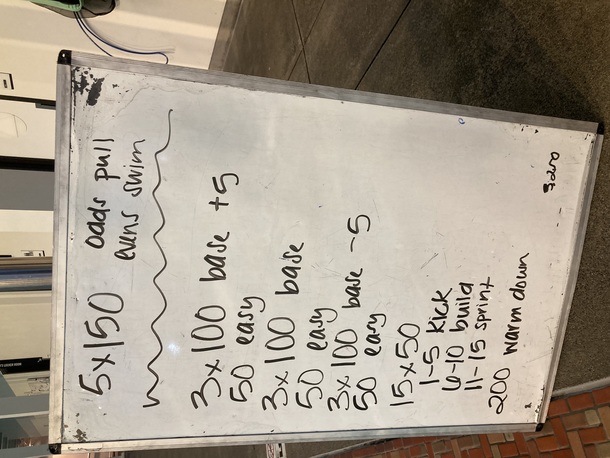 5x150 odds pull
evens swim
3x100 base +5
50 easy
3x100 base
50 easy
3x100 base -5
50 easy
15x50
1-5 kick
6-10 build
11-15 sprint
200 warm down
3250